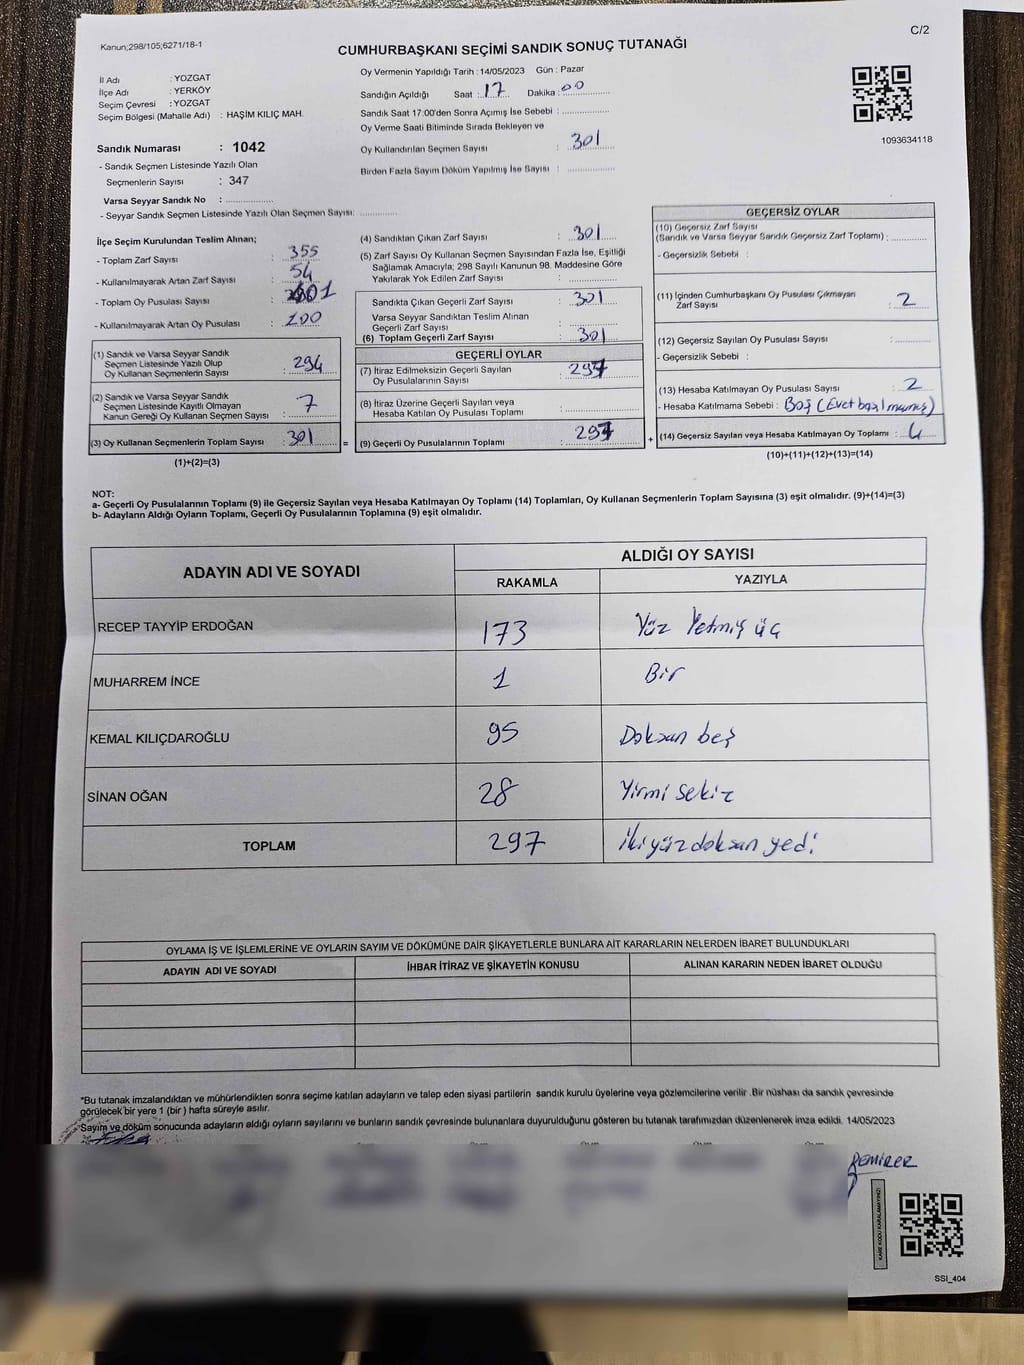 Kanun;298/105;6271/18-1
C/2
CUMHURBAŞKANI SEÇİMİ SANDIK SONUÇ TUTANAĞI
İl Adı : YOZGAT
İlçe Adı : YERKÖY
Seçim Çevresi : YOZGAT
Seçim Bölgesi (Mahalle Adı) : HAŞİM KILIÇ MAH.
Sandık Numarası : 1042
- Sandık Seçmen Listesinde Yazılı Olan
Seçmenlerin Sayısı : 347
Varsa Seyyar Sandık No :
- Seyyar Sandık Seçmen Listesinde Yazılı Olan Seçmen Sayısı:
Oy Vermenin Yapıldığı Tarih : 14/05/2023 Gün : Pazar
Sandığın Açıldığı Saat : 17 Dakika : 00
Sandık Saat 17:00'den Sonra Açımış İse Sebebi :
Oy Verme Saati Bitiminde Sırada Bekleyen ve
Oy Kullandırılan Seçmen Sayısı : 301
Birden Fazla Sayım Döküm Yapılmış İse Sayısı :
1093634118
İlçe Seçim Kurulundan Teslim Alınan;
- Toplam Zarf Sayısı : 355
- Kullanılmayarak Artan Zarf Sayısı : 54
- Toplam Oy Pusulası Sayısı :
- Kullanılmayarak Artan Oy Pusulası : 100
(1) Sandık ve Varsa Seyyar Sandık
Seçmen Listesinde Yazılı Olup
Oy Kullanan Seçmenlerin Sayısı : 294
(2) Sandık ve Varsa Seyyar Sandık
Seçmen Listesinde Kayıtlı Olmayan
Kanun Gereği Oy Kullanan Seçmen Sayısı : 7
(3) Oy Kullanan Seçmenlerin Toplam Sayısı : 301 =
(1)+(2)=(3)
(4) Sandıktan Çıkan Zarf Sayısı : 301
(5) Zarf Sayısı Oy Kullanan Seçmen Sayısından Fazla İse, Eşitliği
Sağlamak Amacıyla; 298 Sayılı Kanunun 98. Maddesine Göre
Yakılarak Yok Edilen Zarf Sayısı :
Sandıkta Çıkan Geçerli Zarf Sayısı : 301
Varsa Seyyar Sandıktan Teslim Alınan
Geçerli Zarf Sayısı :
(6) Toplam Geçerli Zarf Sayısı : 301
GEÇERLİ OYLAR
(7) İtiraz Edilmeksizin Geçerli Sayılan
Oy Pusulalarının Sayısı : 297
(8) İtiraz Üzerine Geçerli Sayılan veya
Hesaba Katılan Oy Pusulaları Toplamı :
(9) Geçerli Oy Pusulalarının Toplamı : 297 +
GEÇERSİZ OYLAR
(10) Geçersiz Zarf Sayısı
(Sandık ve Varsa Seyyar Sandık Geçersiz Zarf Toplamı) :
- Geçersizlik Sebebi :
(11) İçinden Cumhurbaşkanı Oy Pusulası Çıkmayan
Zarf Sayısı : 2
(12) Geçersiz Sayılan Oy Pusulası Sayısı :
- Geçersizlik Sebebi :
(13) Hesaba Katılmayan Oy Pusulası Sayısı : 2
- Hesaba Katılmama Sebebi : Boş (Evet basılmamış)
(14) Geçersiz Sayılan veya Hesaba Katılmayan Oy Toplamı : 4
(10)+(11)+(12)+(13)=(14)
NOT:
a- Geçerli Oy Pusulalarının Toplamı (9) ile Geçersiz Sayılan veya Hesaba Katılmayan Oy Toplamı (14) Toplamları, Oy Kullanan Seçmenlerin Toplam Sayısına (3) eşit olmalıdır. (9)+(14)=(3)
b- Adayların Aldığı Oyların Toplamı, Geçerli Oy Pusulalarının Toplamına (9) eşit olmalıdır.
ADAYIN ADI VE SOYADI
ALDIĞI OY SAYISI
RAKAMLA YAZIYLA
RECEP TAYYİP ERDOĞAN 173 Yüz Yetmiş üç
MUHARREM İNCE 1 Bir
KEMAL KILIÇDAROĞLU 95 Doksan beş
SİNAN OĞAN 28 Yirmi sekiz
TOPLAM 297 İkiyüzdoksan yedi
OYLAMA İŞ VE İŞLEMLERİNE VE OYLARIN SAYIM VE DÖKÜMÜNE DAİR ŞİKAYETLERLE BUNLARA AİT KARARLARIN NELERDEN İBARET BULUNDUKLARI
ADAYIN ADI VE SOYADI İHBAR İTİRAZ VE ŞİKAYETİN KONUSU ALINAN KARARIN NEDEN İBARET OLDUĞU
*Bu tutanak imzalandıktan ve mühürlendikten sonra seçime katılan adayların ve talep eden siyasi partilerin sandık kurulu üyelerine veya gözlemcilerine verilir. Bir nüshası da sandık çevresinde
görülecek bir yere 1 (bir) hafta süreyle asılır.
Sayım ve döküm sonucunda adayların aldığı oyların sayısını ve bunların sandık çevresinde bulunanlara duyurulduğunu gösteren bu tutanak tarafımızdan düzenlenerek imza edildi. 14/05/2023
DEMİRER
KARE KODU KARALAMAYINIZ!
SSİ_404